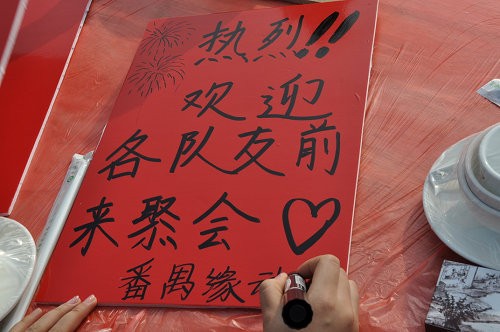 热烈!!
欢迎
各队友前
来聚会
番禺缘